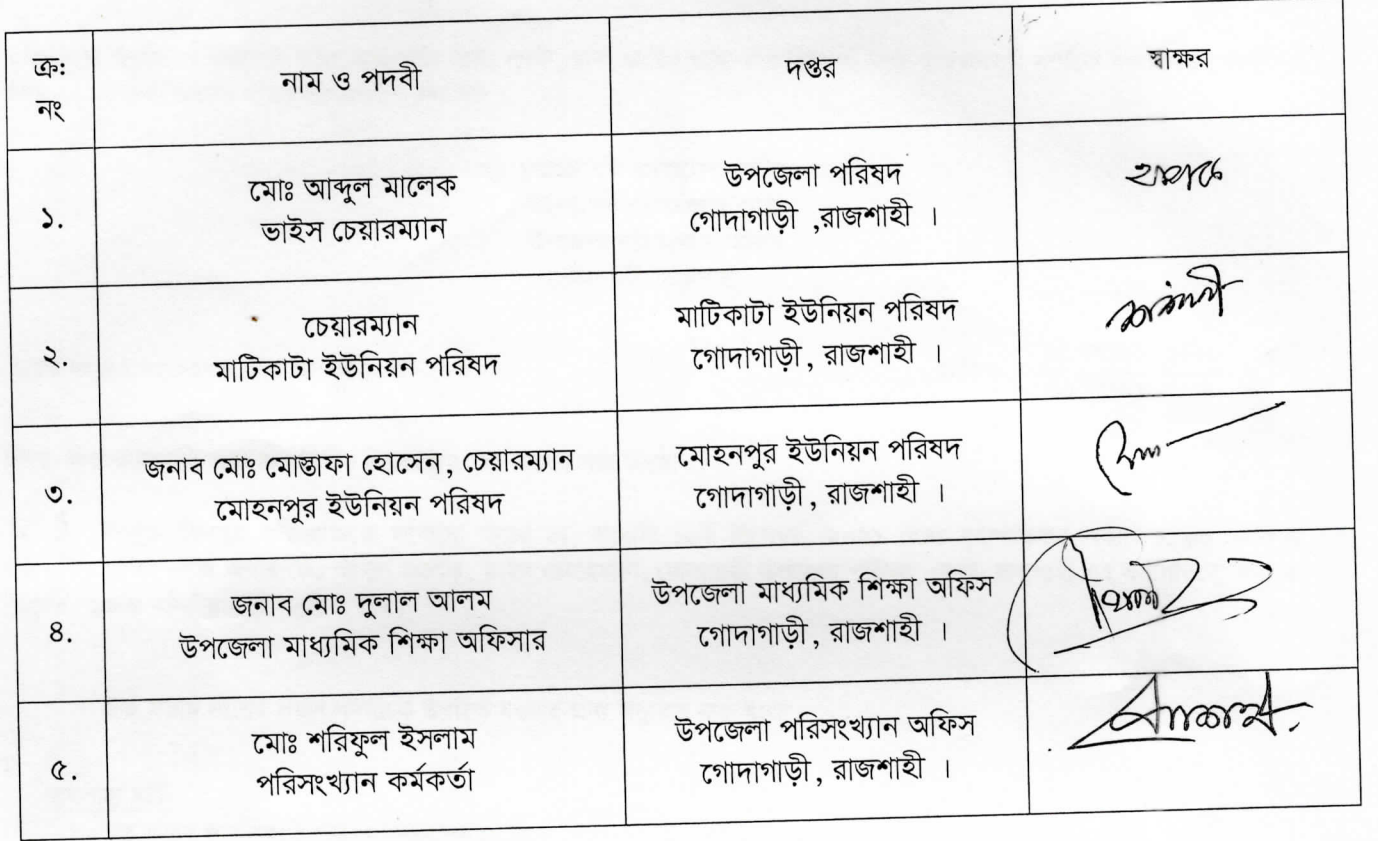 ক্র: নাম ও পদবী দপ্তর স্বাক্ষর
নং
১. মোঃ আব্দুল মালেক উপজেলা পরিষদ
ভাইস চেয়ারম্যান গোদাগাড়ী ,রাজশাহী ।
২ চেয়ারম্যান মাটিকাটা ইউনিয়ন পরিষদ
মাটিকাটা ইউনিয়ন পরিষদ গোদাগাড়ী, রাজশাহী ।
৩. জনাব মোঃ মোস্তাফা হোসেন, চেয়ারম্যান মোহনপুর ইউনিয়ন পরিষদ
মোহনপুর ইউনিয়ন পরিষদ গোদাগাড়ী, রাজশাহী ।
৪. জনাব মোঃ দুলাল আলম উপজেলা মাধ্যমিক শিক্ষা অফিস
উপজেলা মাধ্যমিক শিক্ষা অফিসার গোদাগাড়ী, রাজশাহী ।
৫. মোঃ শরিফুল ইসলাম উপজেলা পরিসংখ্যান অফিস
পরিসংখ্যান কর্মকর্তা গোদাগাড়ী, রাজশাহী ।